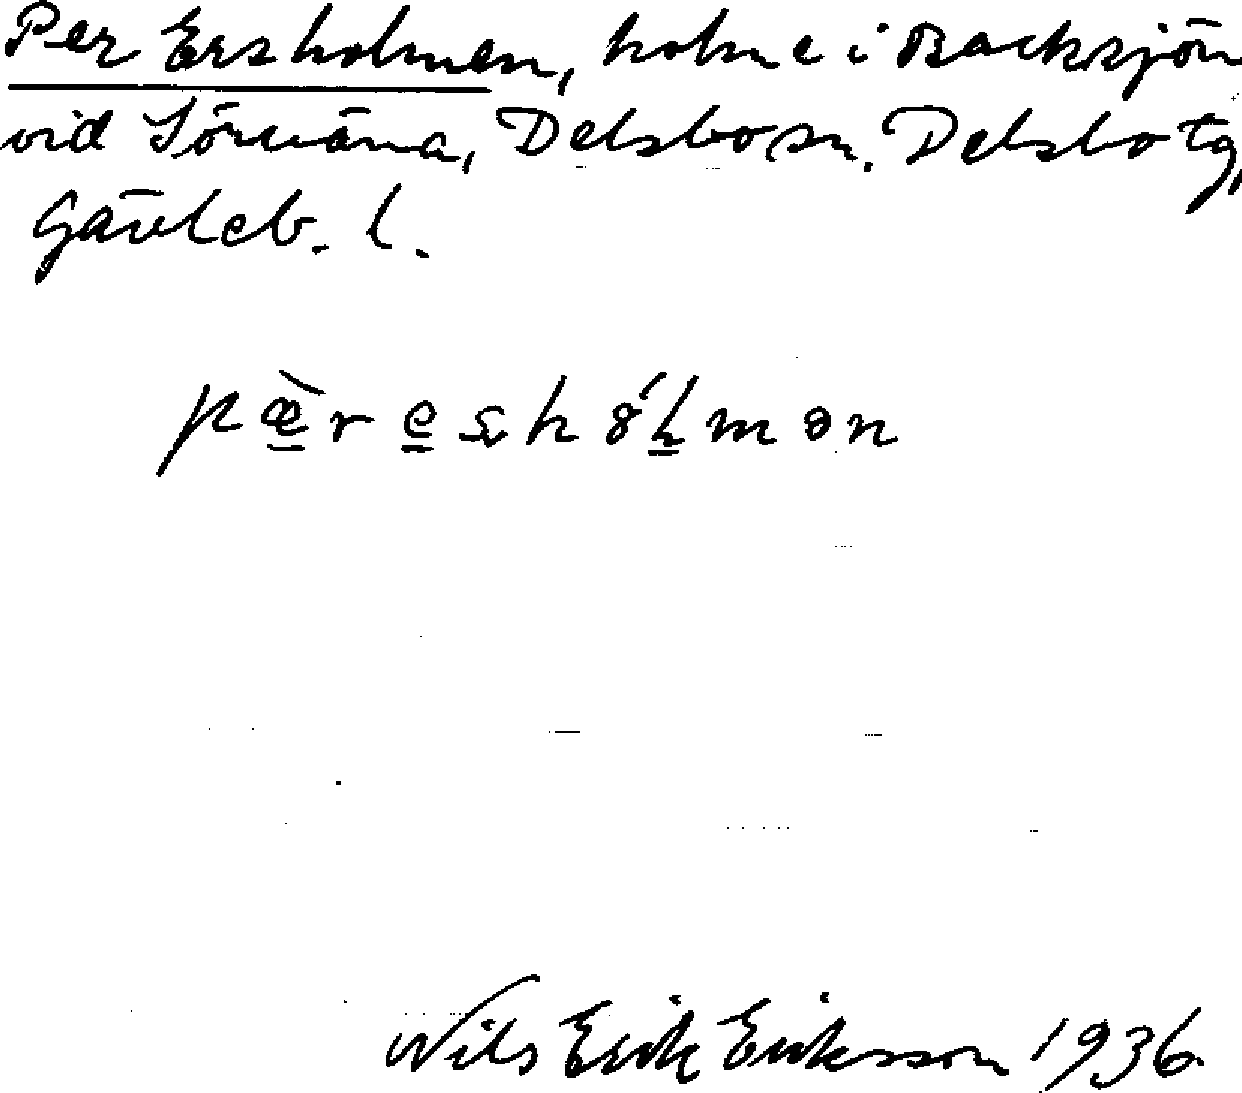 Per Ersholmen, holme i Backsjön
vid Sörväna, Delsbo sn. Delsbo tg,
Gävleb. l.
pæ̀reshólmən
Nils Erik Eriksson 1936